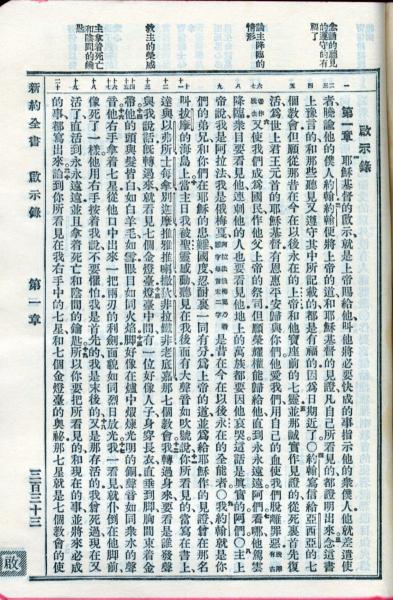 念的聽見
的遵守的有
福了
論主降臨的
情形
救主的榮威
主拿着死亡
和陰間的鑰
匙
啟示錄
第一章 耶穌基督的啟示就是上帝賜給他叫他將必要快成的事指示他的衆僕人他就差遣使
者曉諭他的僕人約翰約翰便將上帝的道和耶穌基督的見證凡自己所看見的都證明出來念這書
上豫言的和那些聽見又遵守其中所記載的都是有福的因爲日期近了〇約翰寫信給亞西亞的七
個教會但願從那昔在今在以後永在的上帝和他寶座前的七靈並那誠實作見證的從死裏首先復
活爲世上君王元首的耶穌基督有恩惠平安歸與你們他愛我們用自己的血使我們脫離罪惡
又使我們成爲國民作他父上帝的祭司但願榮耀權能歸給他直到永永遠遠阿們看哪他駕雲
降臨衆目要看見他連刺他的人也要看見他地上的萬族都要因他哀哭這話是真實的阿們〇主上
帝說我是阿拉法我是俄梅戛是昔在今在以後永在的全能者〇我約翰就是你
們的弟兄和你們在耶穌的患難國度忍耐裏一同有分爲上帝的道並爲給耶穌作的見證曾在那名
叫拔摩的海島上當主日我被聖靈感動聽見在我後面有大聲音如吹號說你所看見的當寫在書上
達與以弗所士每拿別迦摩推雅推喇撒狄非拉鐵非老底嘉那七個教會我轉過身來要看是誰發聲
與我說話既轉過來就看見七個金燈臺燈臺中間有一位好像人子身穿長衣直垂到脚胸間束着金
帶他的頭與髮皆白如白羊毛如雪眼目如同火焰脚好像在爐中煅煉光明的銅聲音如同衆水的聲
音他右手拿着七星從他口中出來一把兩刃的利劍面貌如同烈日放光我一看見就仆倒在他脚前
像死了一樣他用右手按着我說不要懼怕我是首先的我是末後的又是那存活的我曾死過現在又
活了直活到永永遠遠並且拿着死亡和陰間的鑰匙所以你要把所看見的和現在的事並將來必成
的事都寫出來論到你所看見在我右手中的七星和七個金燈臺的奧秘那七星就是七個教會的使
新約全書 啟示錄 第一章 三百三十三
啟